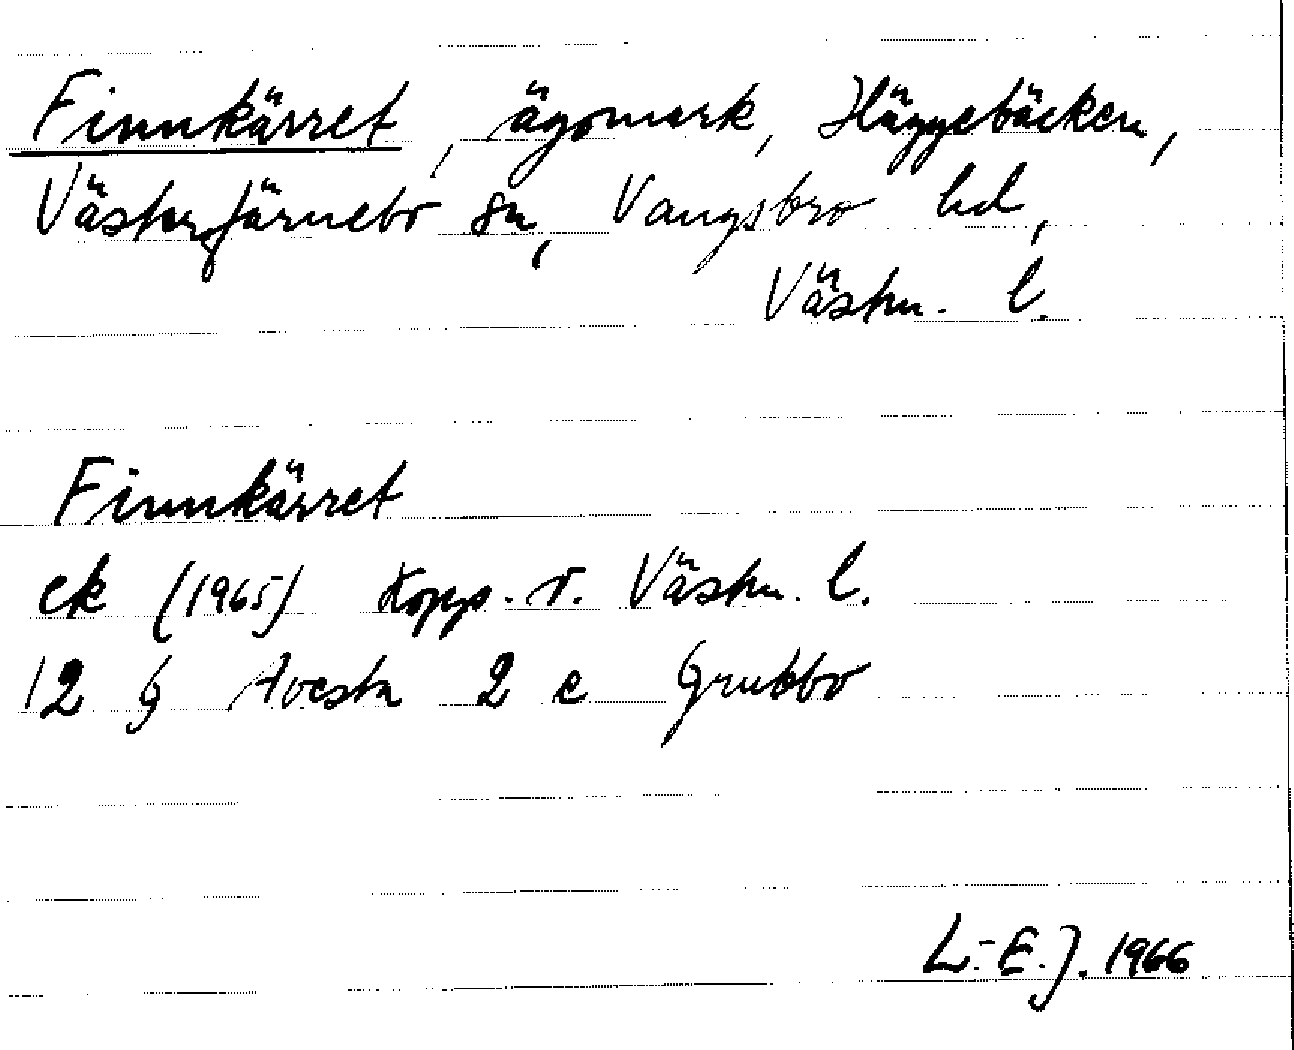 Finnkärret, ägomark, Häggebäcken,
Västerfärnebo sn, Vangsbro hd,
Västm. l.
Finnkärret
ek (1965) Kopp.-v. Västm. l.
12 G Avesta 2 e Grubbo
L.-E.J. 1966